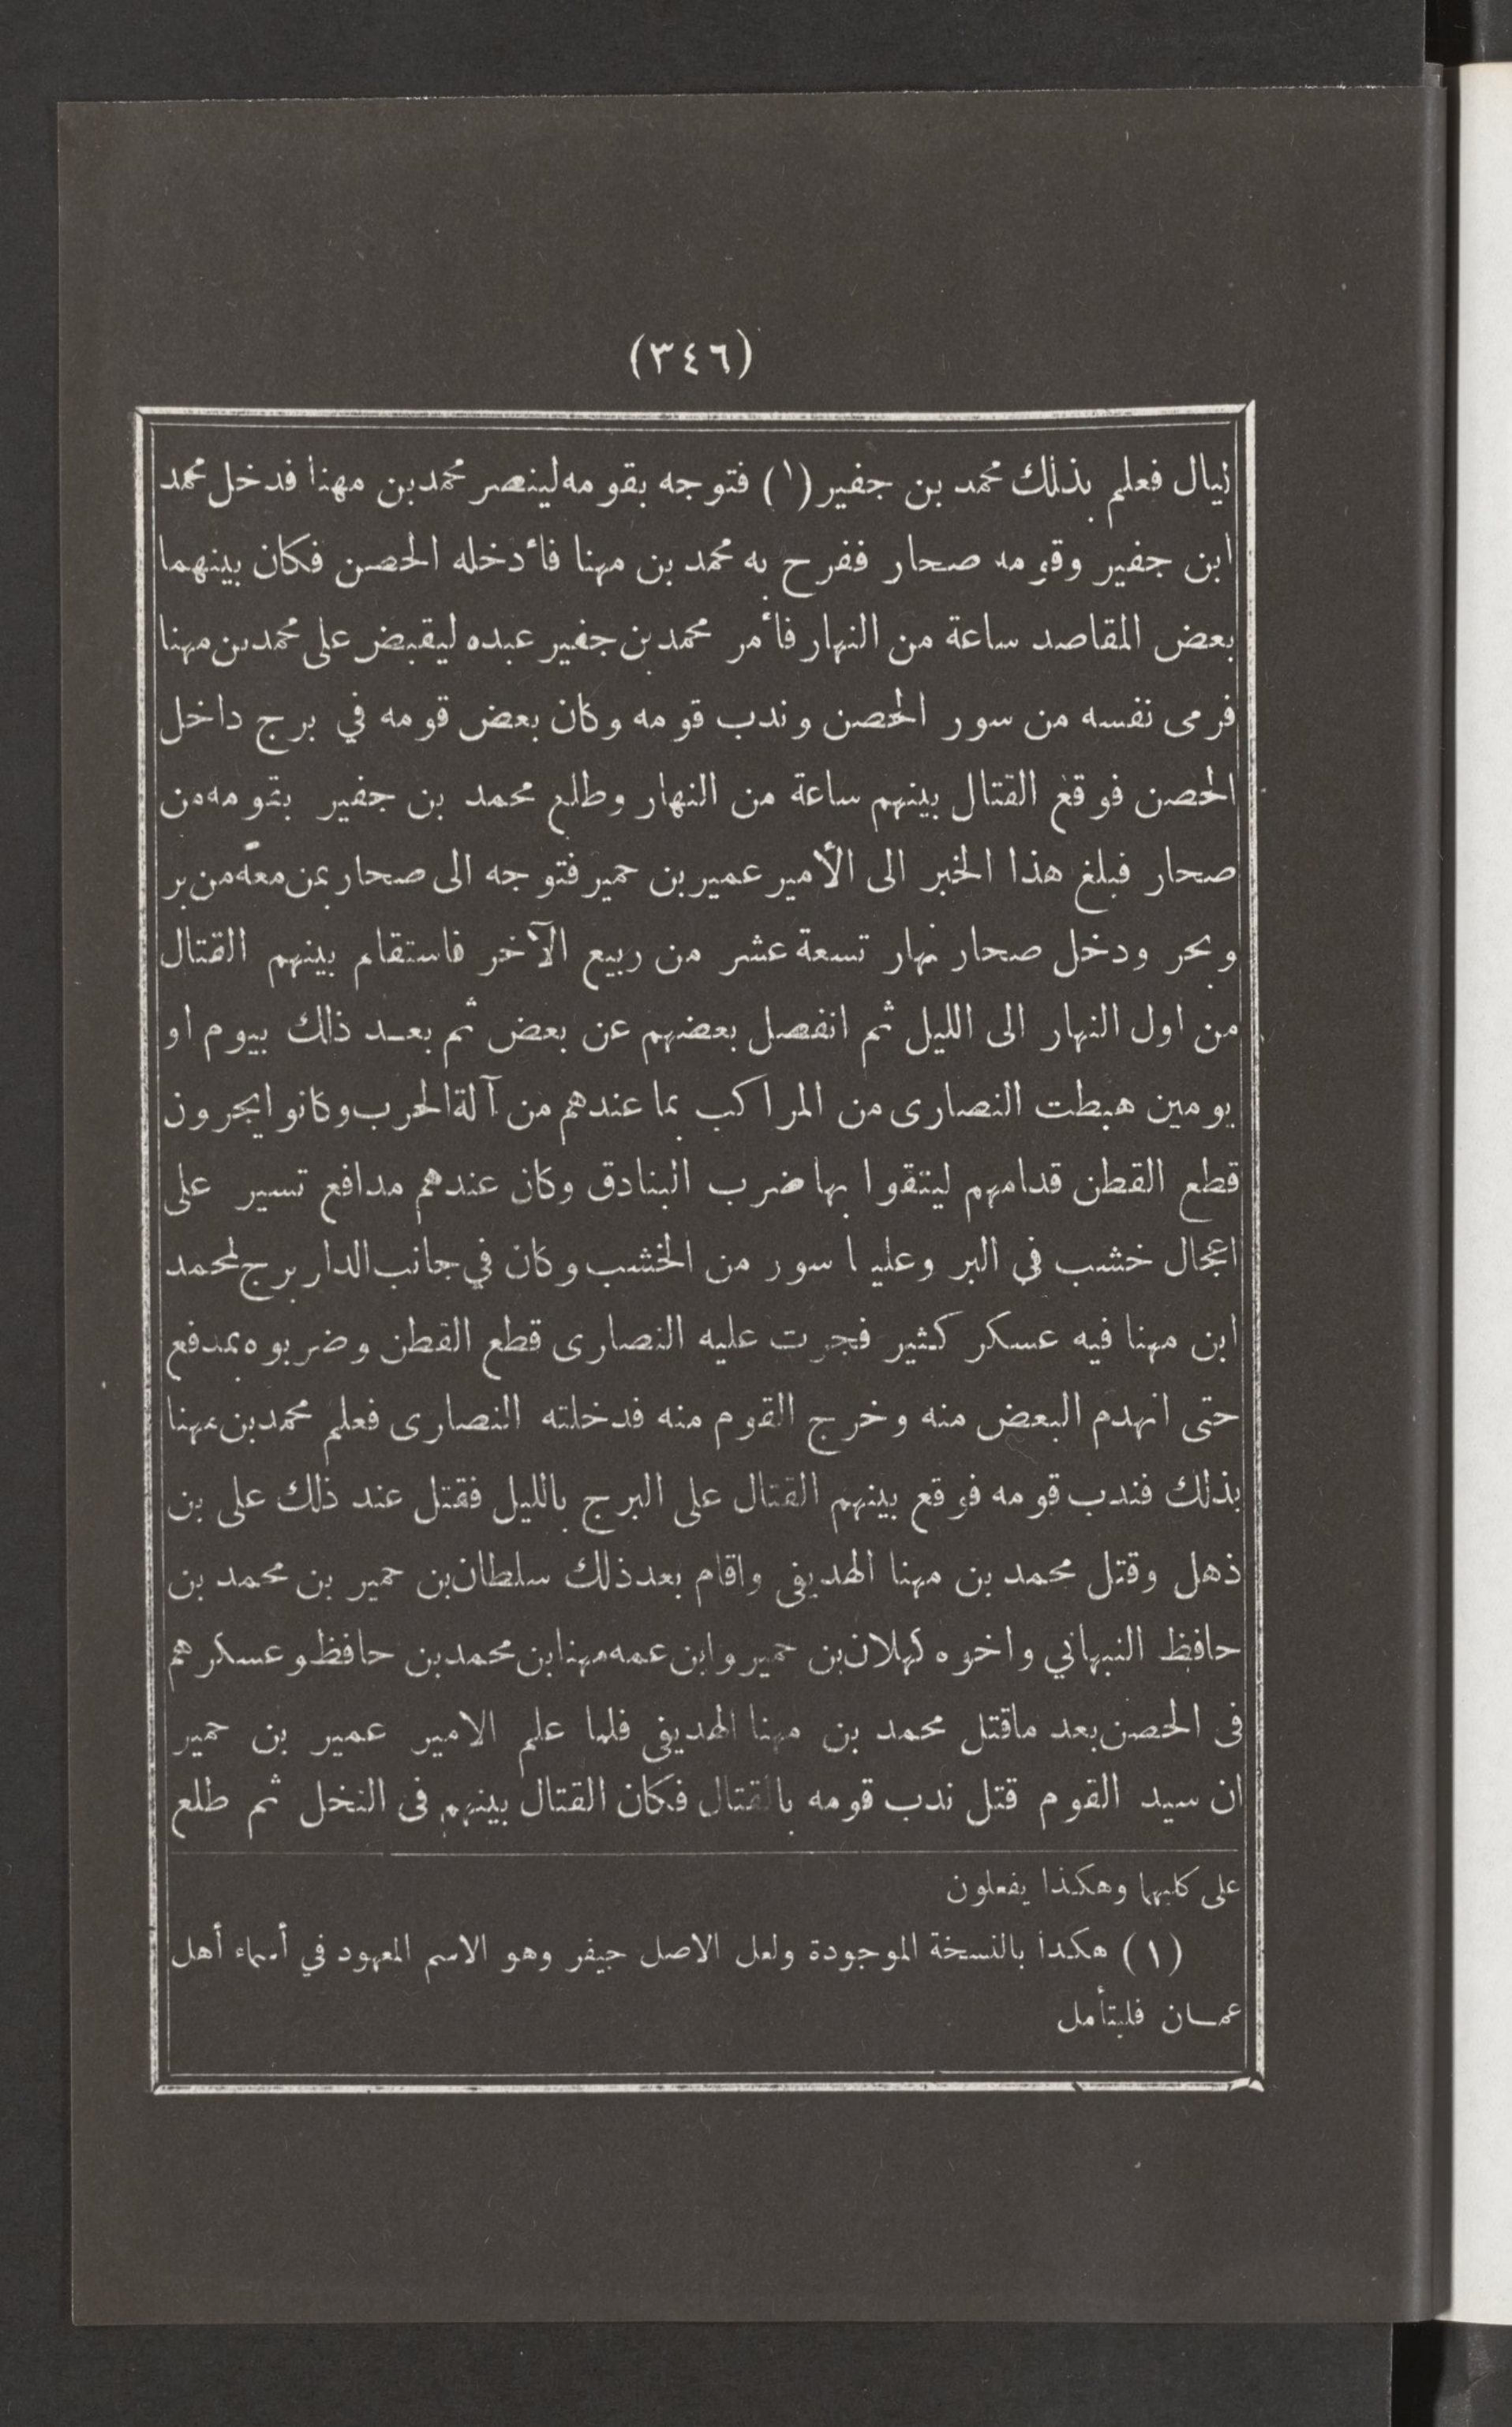 (٣٤٦)
ليال فعلم بذلك محمد بن جفير (١) فتوجه بقومه لينصر محمد بن مهنا فدخل محمد
ابن جفير وقومه صحار ففرح به محمد بن مهنا فأدخله الحصن فكان بينهما
بعض المقاصد ساعة من النهار فأمر محمد بن جفير عبده ليقبض على محمد بن مهنا
فرمى نفسه من سور الحصن وندب قومه وكان بعض قومه في برج داخل
الحصن فوقع القتال بينهم ساعة من النهار وطلع محمد بن جفير بقومه من
صحار فبلغ هذا الخبر الى الأمير عمير بن حمير فتوجه الى صحار بمن معه من بر
وبحر ودخل صحار نهار تسعة عشر من ربيع الآخر فاستقام بينهم القتال
من اول النهار الى الليل ثم انفصل بعضهم عن بعض ثم بعد ذلك بيوم او
يومين هبطت النصارى من المراكب بما عندهم من آلة الحرب وكانوا يجرون
قطع القطن قدامهم ليتقوا بها ضرب البنادق وكان عندهم مدافع تسير على
اعجال خشب في البر وعليها سور من الخشب وكان في جانب الدار برج لمحمد
ابن مهنا فيه عسكر كثير فجرت عليه النصارى قطع القطن وضربوه بمدفع
حتى انهدم البعض منه وخرج القوم منه فدخلته النصارى فعلم محمد بن مهنا
بذلك فندب قومه فوقع بينهم القتال على البرج بالليل فقتل عند ذلك على بن
ذهل وقتل محمد بن مهنا الهديفى واقام بعد ذلك سلطان بن حمير بن محمد بن
حافظ النبهاني واخوه كهلان بن حمير وابن عمه مهنا بن محمد بن حافظ وعسكرهم
فى الحصن بعد ماقتل محمد بن مهنا الهديفى فلما علم الامير عمير بن حمير
ان سيد القوم قتل ندب قومه بالقتال فكان القتال بينهم فى النخل ثم طلع
على كليهما وهكذا يفعلون
(١) هكذا بالنسخة الموجودة ولعل الاصل جيفر وهو الاسم المعهود في أسماء أهل
عمـان فليتأمل